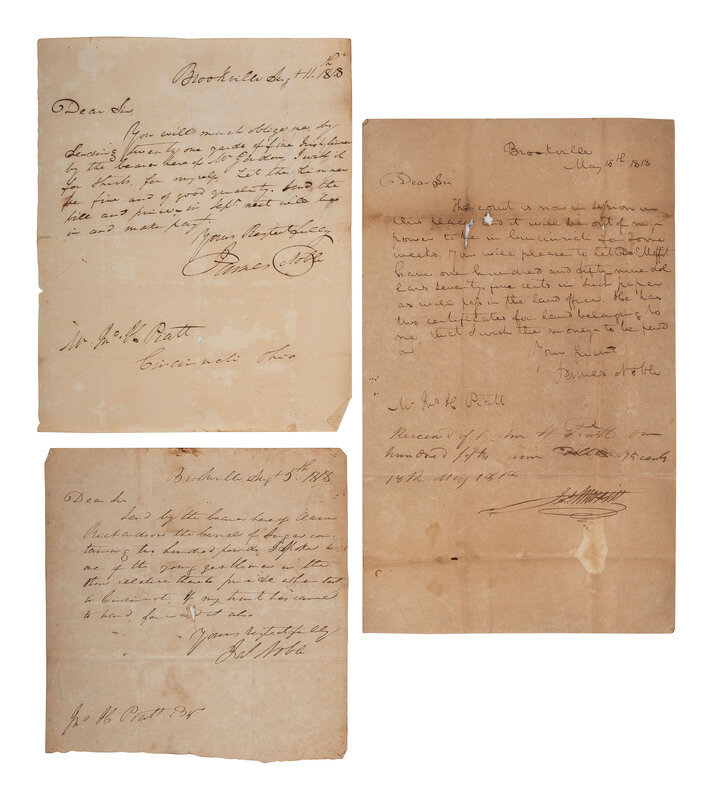 Brookville Augt 11th 1818
Dear Sir
You will much oblige me, by
Sending twenty one yards of fine Irish linen
by the bearer hereof Mr Gordon, I wish it
for Shirts, for myself. Let the linnen
be fine and of good quality. Send the
bill and prices in Septr next will be
in and make payt.
Yours Respectfully
James Noble
Mr Jno. H. Piatt
Cincinnati Ohio
Brookville Augt 5th 1818
Dear Sir
Send by the bearer hereof Aaron
Richardson the barrel of Sugar con-
taining two hundred pounds. I spoke to
one of the young gentlemen in the
Store relative thereto precise when last
in Cincinnati. If my trunk has came
to hand, forward it also
Yours respectfully
Jas Noble
Jno H Piatt Esr.
Brookville
May 15th 1818
Dear Sir
The court is now in session in
this place and it will be out of my
power to be in Cincinnati for some
weeks. You will please to let
have one hundred and fifty nine dol
lars seventy five cents in such paper
as will pass in the land office. He has
two certificates for land belonging to
me, that I wish the money to be paid
on.
Your friend
James Noble
Mr Jno H Piatt
Received of Jno H Piatt one
hundred fifty nine Dollars 75 cents
18th May 1818